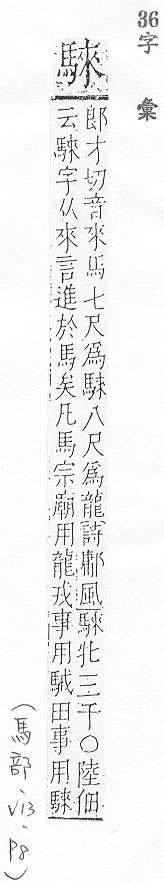 36字 彙
騋
郎才切音來馬七尺爲騋八尺爲龍詩鄘風騋牝三千○陸佃
云騋字从來言進於馬矣凡馬宗廟用龍戎事用駥田事用騋
(馬部·V13·P8)